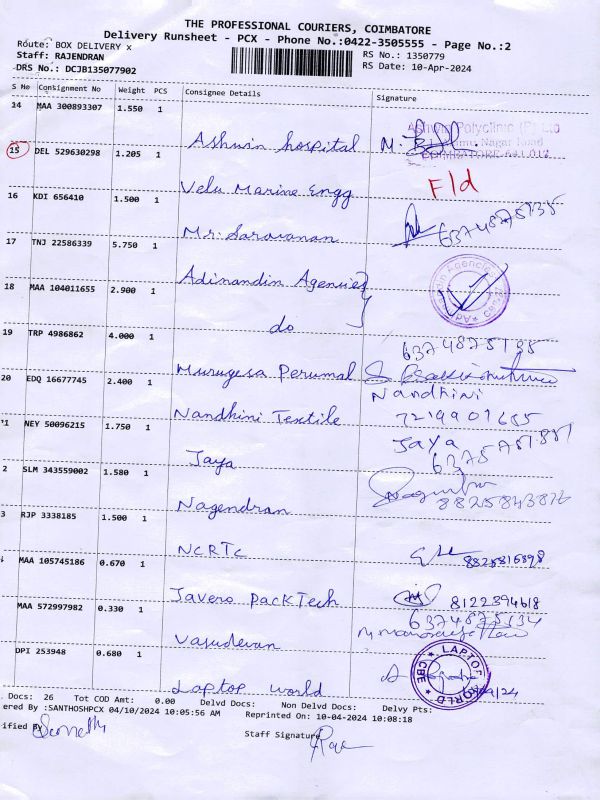 THE PROFESSIONAL COURIERS, COIMBATORE
Delivery Runsheet - PCX - Phone No.:0422-3505555 - Page No.:2
Route: BOX DELIVERY x
RS No.: 1350779
Staff: RAJENDRAN
RS Date: 10-Apr-2024
DRS No.: DCJB135077902
S No Consignment No Weight PCS Consignee Details Signature
14 MAA 300893307 1.550 1
Ashwin hospital M.
Ashwin Polyclinic (P) Ltd
Nagar Road
COIMBATORE-641 012
15 DEL 529630298 1.205 1
Velu Marine Engg F/d
16 KDI 656410 1.500 1
Mr. Saravanan
17 TNJ 22586339 5.750 1
Adinandin Agencies
18 MAA 104011655 2.900 1
do
19 TRP 4986862 4.000 1
Murugesa Perumal
20 EDQ 16677745 2.400 1
Nandhini
Nandhini Textile 7219901655
21 NEY 50096215 1.750 1
Jaya
Jaya
2 SLM 343559002 1.580 1
Nagendran 8825843876
3 RJP 3338185 1.500 1
NCRTC
MAA 105745186 0.670 1
Javero PackTech 8122394618
MAA 572997982 0.330 1
Vasudevan
DPI 253948 0.680 1
Laptop World
LAPTOP WORLD CBE
Docs: 26 Tot COD Amt: 0.00 Delvd Docs: Non Delvd Docs: Delvy Pts:
ered By :SANTHOSHPCX 04/10/2024 10:05:56 AM Reprinted On: 10-04-2024 10:08:18
ified By
Staff Signature